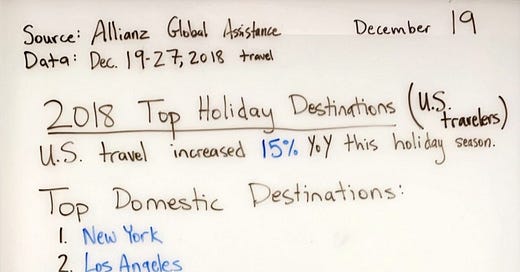 Source: Allianz Global Assistance
December 19
Data: Dec. 19-27, 2018 travel
2018 Top Holiday Destinations (U.S. travelers)
U.S. travel increased 15% YoY this holiday season.
Top Domestic Destinations:
1. New York
2. Los Angeles